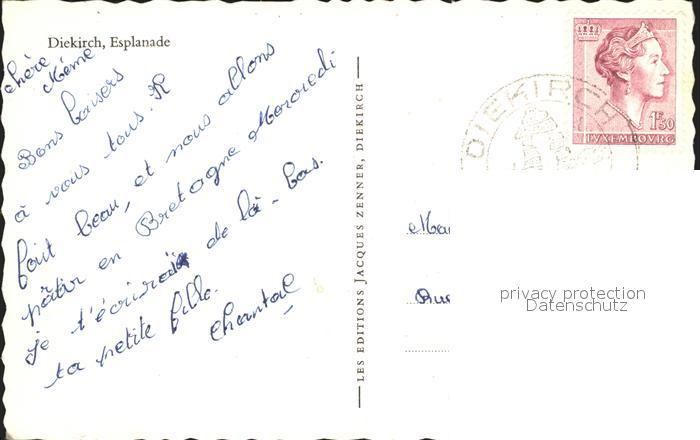 Diekirch, Esplanade
chère Mémé
Bons baisers
à vous tous. Il
fait beau, et nous allons
pâtir en Bretagne Mercredi
je t'écrirai de là-bas.
ta petite fille.
Chantal
LES EDITIONS JACQUES ZENNER, DIEKIRCH
DIEKIRCH
1F50
LUXEMBOURG
privacy protection
Datenschutz